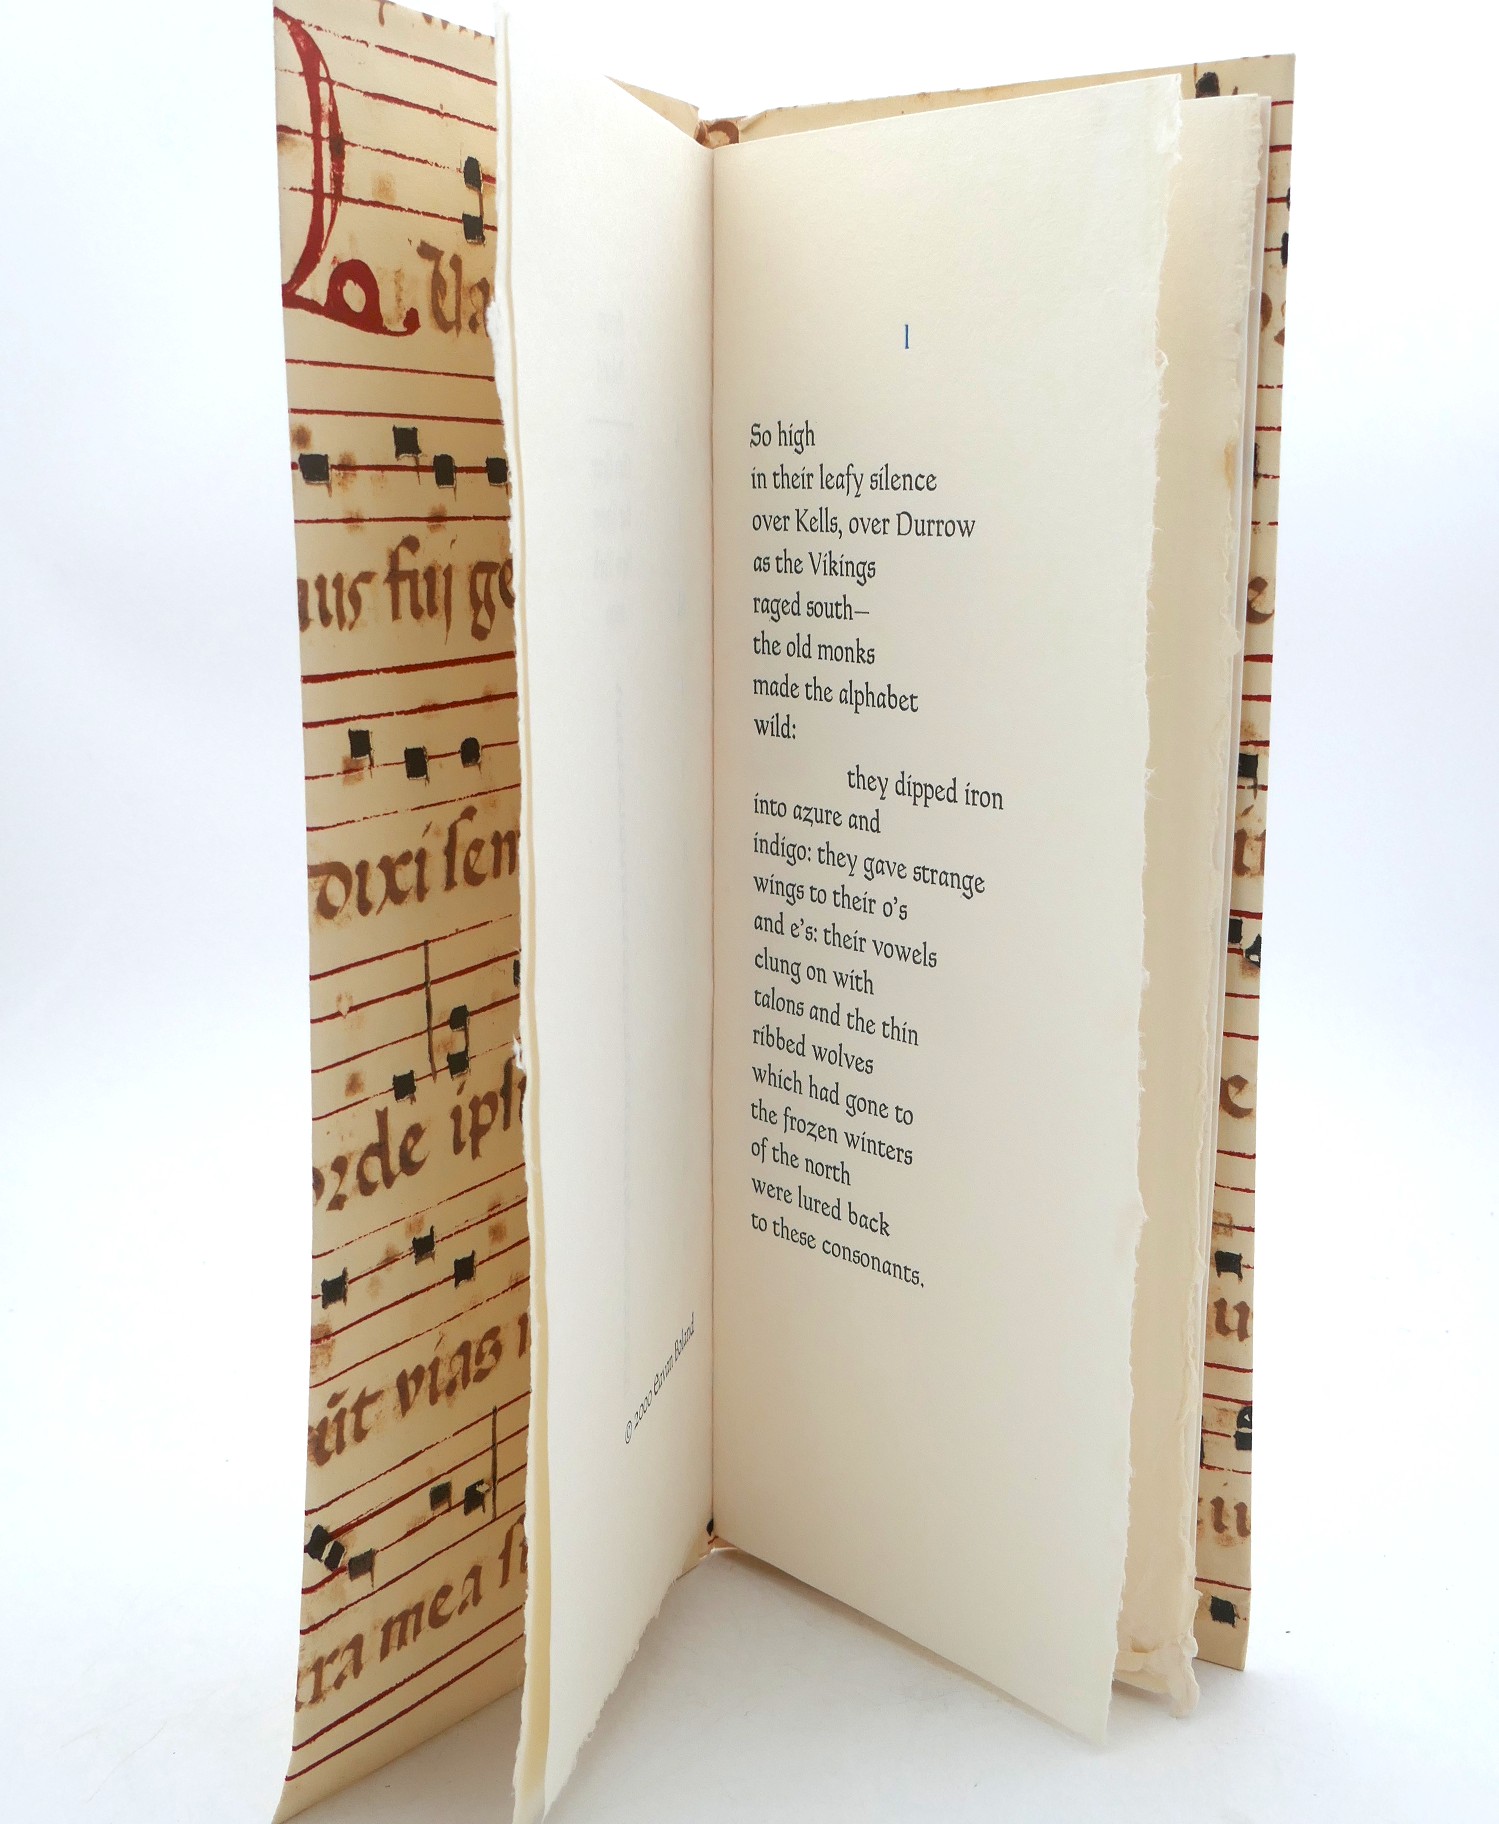 Va
nus fuj ge
dixi sem
orde ipsi
ut vias
tra mea
© 2000 Eavan Boland
1
So high
in their leafy silence
over Kells, over Durrow
as the Vikings
raged south—
the old monks
made the alphabet
wild:
they dipped iron
into azure and
indigo: they gave strange
wings to their o's
and e's: their vowels
clung on with
talons and the thin
ribbed wolves
which had gone to
the frozen winters
of the north
were lured back
to these consonants.